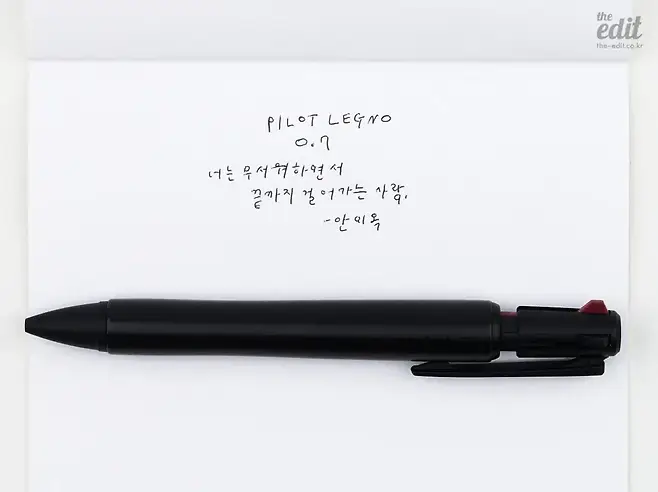 the
edit
the-edit.co.kr
PILOT LEGNO
0.7
너는 무서워하면서
끝까지 걸어가는 사람.
-안미옥